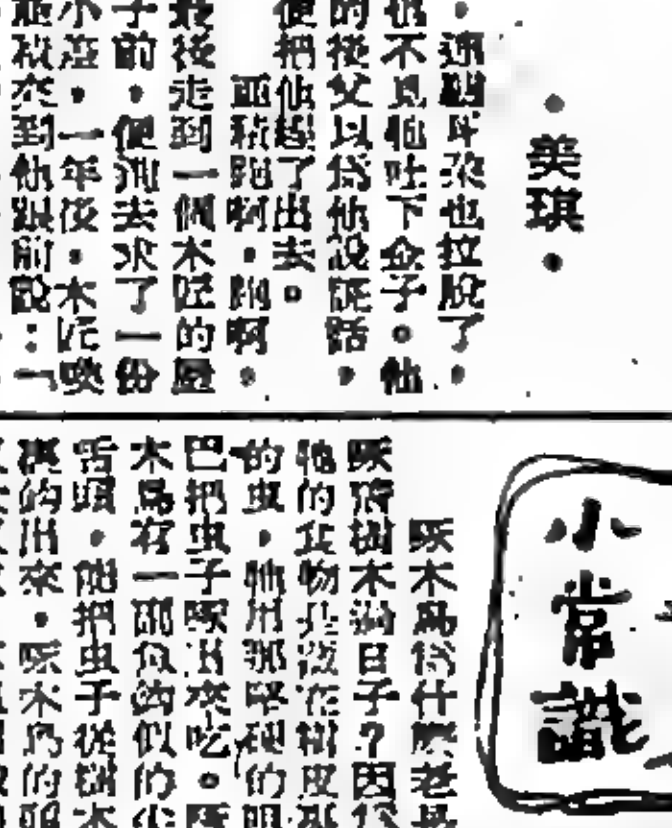 •美琪•
,連驢耳朵也拉脫了,
也不見他吐下金子。他
的後父以為他說謊話,
便把他趕了出去。
亞琪跑啊,跑啊,
最後走到一個木匠的屋
子前,便跑去求了一份
小差,一年後,木匠喚
到他跟前說:「
小常識
啄木鳥為什麼老是
啄着樹木過日子?因為
牠的食物是設在樹皮
的虫,牠用那堅硬的嘴
巴把虫子啄出來吃。
木鳥有一個魚鈎似的尖
舌頭,能把虫子從樹木
鈎出來,啄木鳥的頭